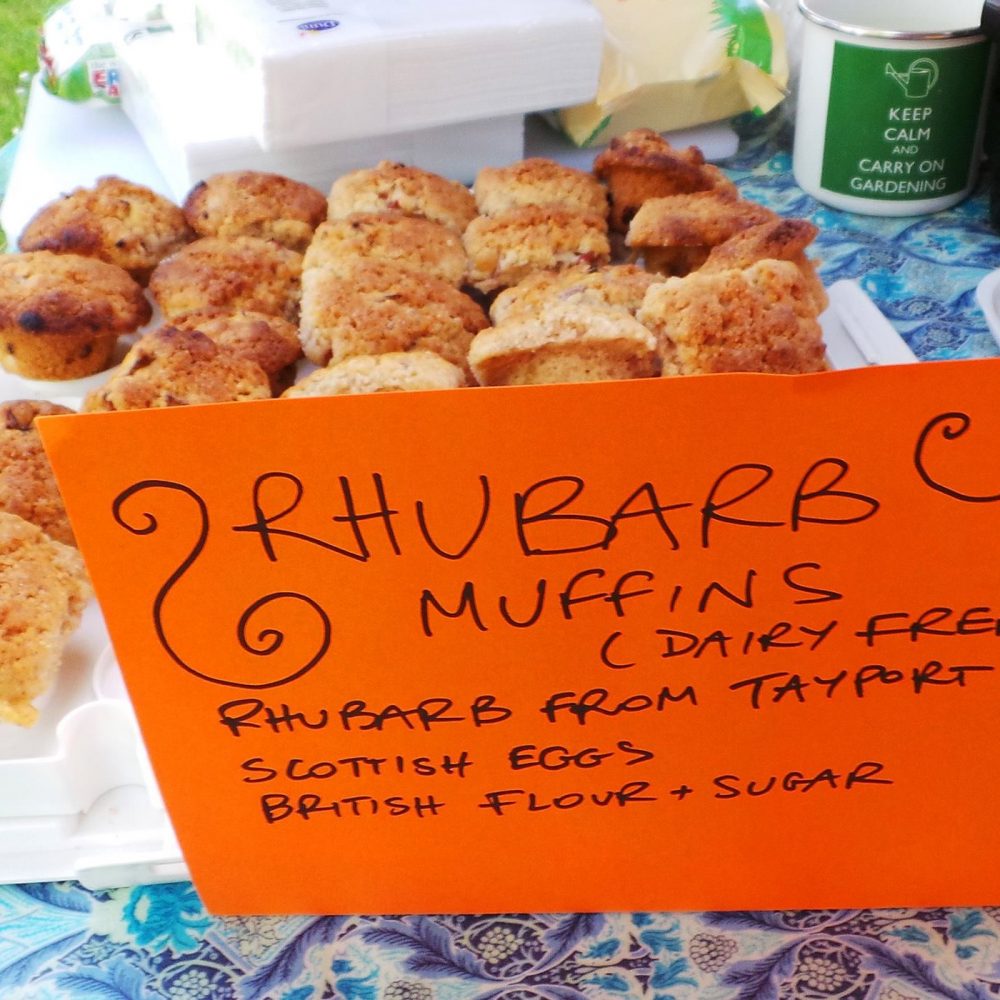 KEEP
CALM
AND
CARRY ON
GARDENING
RHUBARB
MUFFINS
(DAIRY FREE
RHUBARB FROM TAYPORT
SCOTTISH EGGS
BRITISH FLOUR + SUGAR